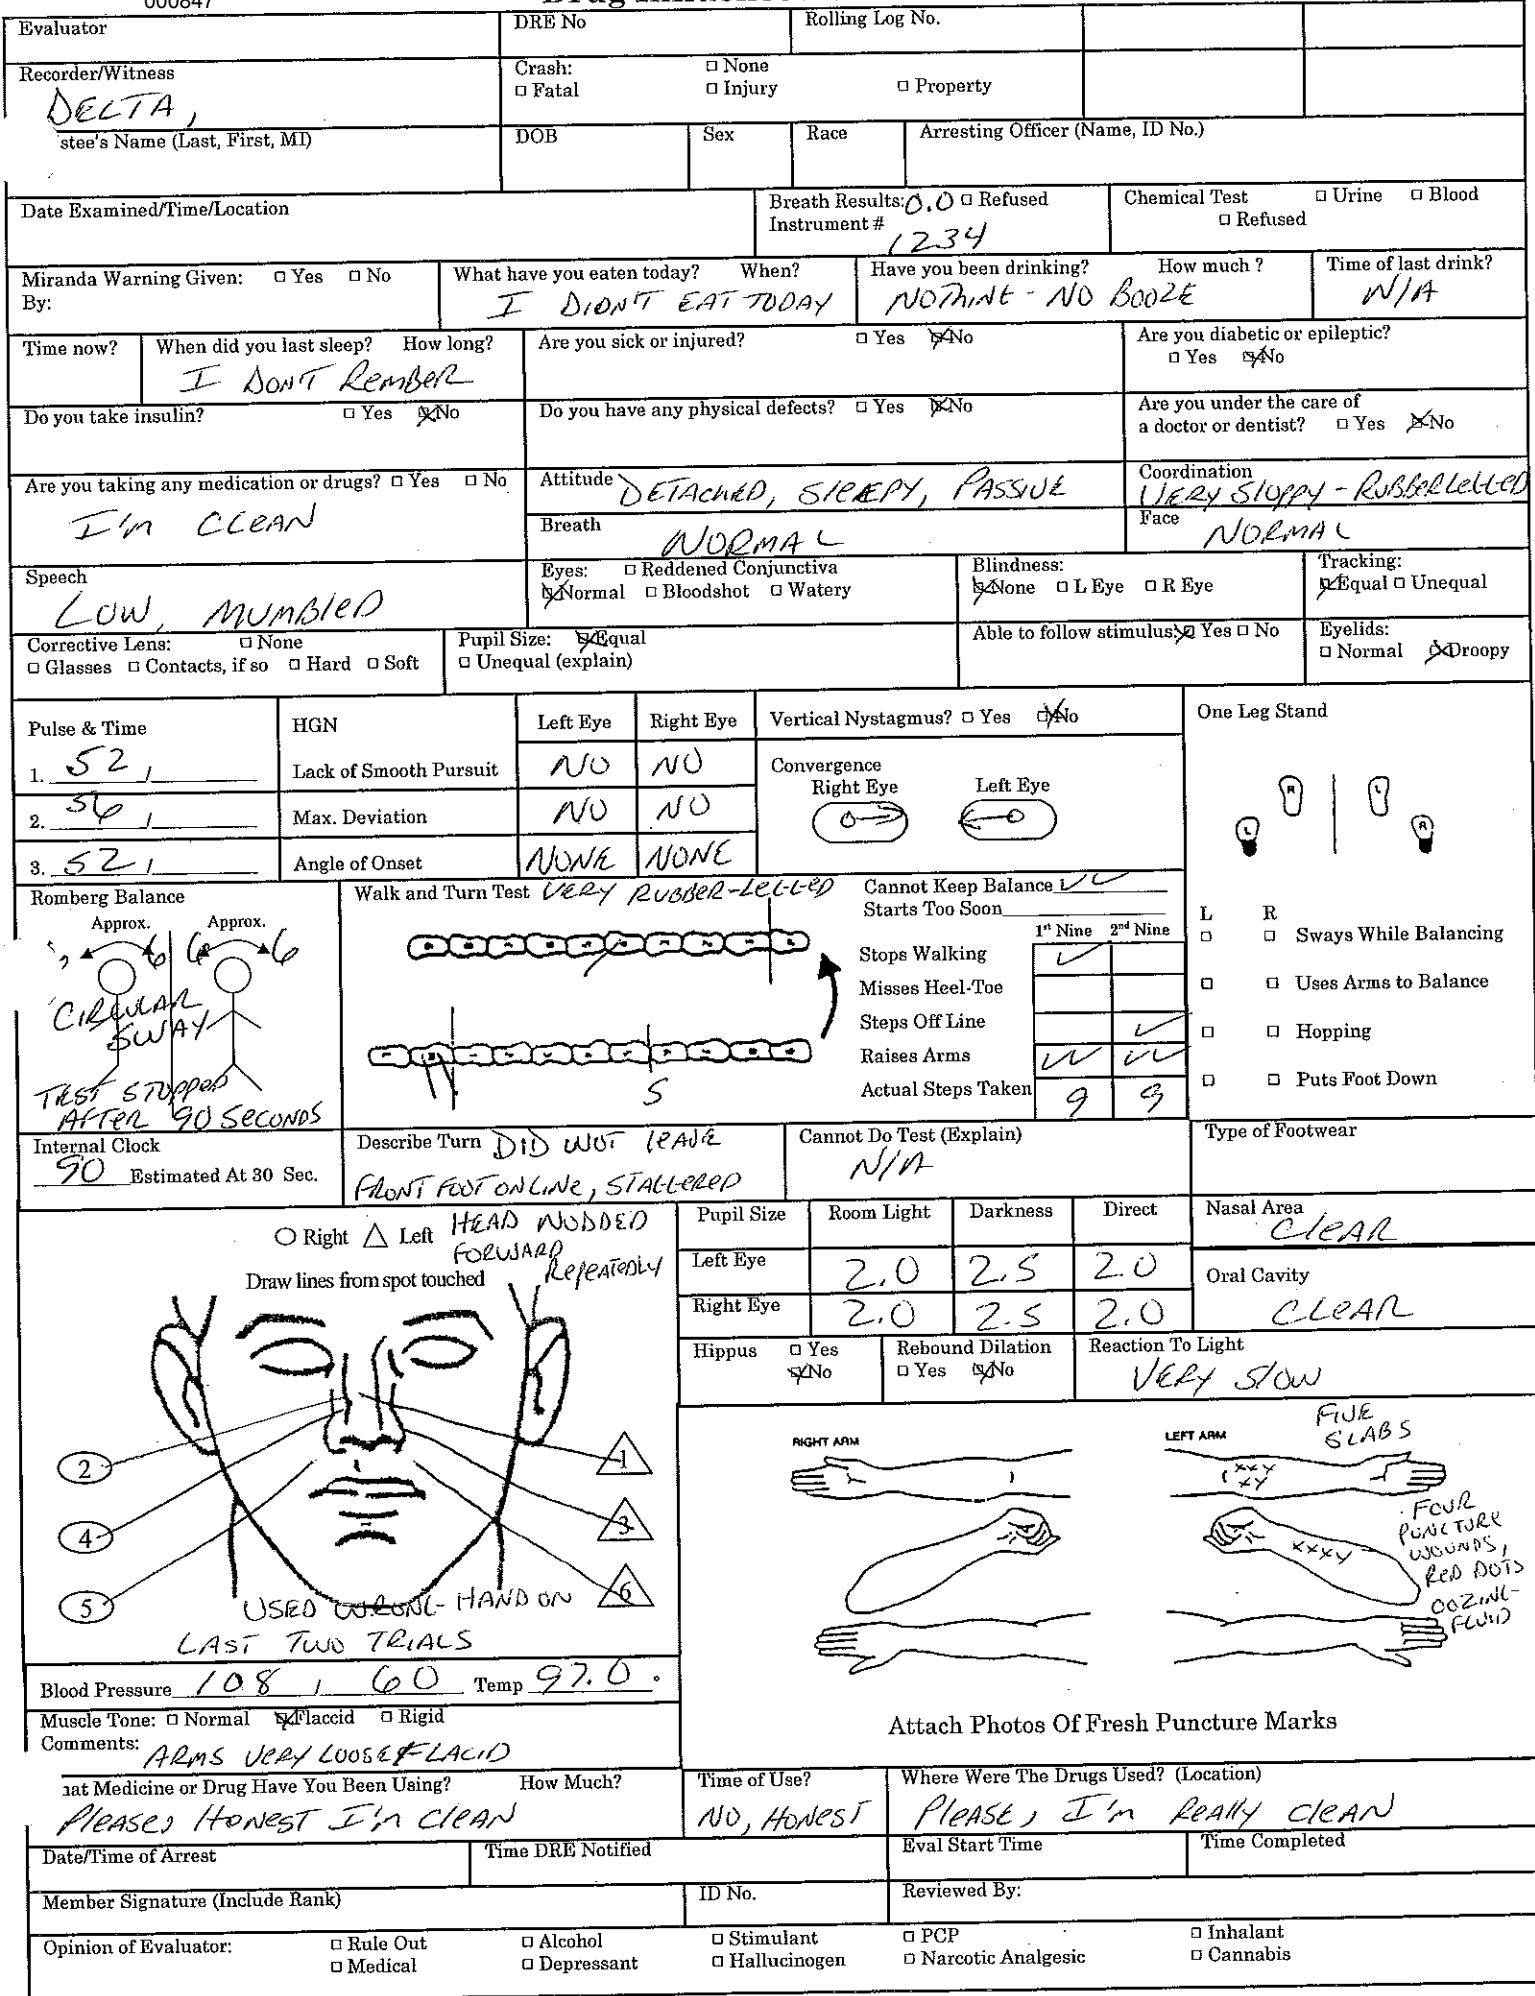 000847
Evaluator
DRE No
Rolling Log No.
Recorder/Witness
Crash: □ None
□ Fatal □ Injury □ Property
DELTA,
stee's Name (Last, First, MI)
DOB
Sex
Race
Arresting Officer (Name, ID No.)
Date Examined/Time/Location
Breath Results: 0.0 □ Refused
Instrument #
1234
Chemical Test □ Urine □ Blood
□ Refused
Miranda Warning Given: □ Yes □ No
By:
What have you eaten today? When?
I DIDN'T EAT TODAY
Have you been drinking? How much ?
NOTHING - NO BOOZE
Time of last drink?
N/A
Time now?
When did you last sleep? How long?
I DON'T REMBER
Are you sick or injured? □ Yes ☒ No
Are you diabetic or epileptic?
□ Yes ☒ No
Do you take insulin? □ Yes ☒ No
Do you have any physical defects? □ Yes ☒ No
Are you under the care of
a doctor or dentist? □ Yes ☒ No
Are you taking any medication or drugs? □ Yes □ No
I'm CLEAN
Attitude DETACHED, SLEEPY, PASSIVE
Coordination
VERY SLOPPY - RUBBERLEGGED
Breath
NORMAL
Face
NORMAL
Speech
LOW, MUMBLED
Eyes: □ Reddened Conjunctiva
☒ Normal □ Bloodshot □ Watery
Blindness:
☒ None □ L Eye □ R Eye
Tracking:
☒ Equal □ Unequal
Corrective Lens: □ None
□ Glasses □ Contacts, if so □ Hard □ Soft
Pupil Size: ☒ Equal
□ Unequal (explain)
Able to follow stimulus: ☒ Yes □ No
Eyelids:
□ Normal ☒ Droopy
Pulse & Time
1. 52 /
2. 56 /
3. 52 /
HGN Left Eye Right Eye
Lack of Smooth Pursuit NO NO
Max. Deviation NO NO
Angle of Onset NONE NONE
Vertical Nystagmus? □ Yes ☒ No
Convergence
Right Eye Left Eye
One Leg Stand
R L
L R
L R
□ □ Sways While Balancing
□ □ Uses Arms to Balance
□ □ Hopping
□ □ Puts Foot Down
Romberg Balance
Approx. Approx.
6 6 6
CIRCULAR
SWAY
TEST STOPPED
AFTER 90 SECONDS
Walk and Turn Test VERY RUBBER-LEGGED
S
Cannot Keep Balance ✓✓
Starts Too Soon
1st Nine 2nd Nine
Stops Walking ✓
Misses Heel-Toe
Steps Off Line ✓
Raises Arms ✓✓ ✓✓
Actual Steps Taken 9 9
Internal Clock
90 Estimated At 30 Sec.
Describe Turn DID NOT LEAVE
FRONT FOOT ON LINE, STAGGERED
Cannot Do Test (Explain)
N/A
Type of Footwear
○ Right △ Left
HEAD NODDED
FORWARD
REPEATEDLY
Draw lines from spot touched
2 1
4 3
5 6
USED WRONG-HAND ON
LAST TWO TRIALS
Pupil Size Room Light Darkness Direct
Left Eye 2.0 2.5 2.0
Right Eye 2.0 2.5 2.0
Nasal Area
CLEAR
Oral Cavity
CLEAR
Hippus □ Yes
☒ No
Rebound Dilation
□ Yes ☒ No
Reaction To Light
VERY SLOW
RIGHT ARM
LEFT ARM
FIVE
SCABS
XXX
XX
FOUR
PUNCTURE
WOUNDS,
RED DOTS
OOZING-
FLUID
XXXX
Attach Photos Of Fresh Puncture Marks
Blood Pressure 108 / 60 Temp 97.0 °
Muscle Tone: □ Normal ☒ Flaccid □ Rigid
Comments:
ARMS VERY LOOSE & FLACID
hat Medicine or Drug Have You Been Using? How Much?
PLEASE, HONEST I'm CLEAN
Time of Use?
NO, HONEST
Where Were The Drugs Used? (Location)
PLEASE, I'm REALLY CLEAN
Date/Time of Arrest
Time DRE Notified
Eval Start Time
Time Completed
Member Signature (Include Rank)
ID No.
Reviewed By:
Opinion of Evaluator: □ Rule Out □ Alcohol □ Stimulant □ PCP □ Inhalant
□ Medical □ Depressant □ Hallucinogen □ Narcotic Analgesic □ Cannabis